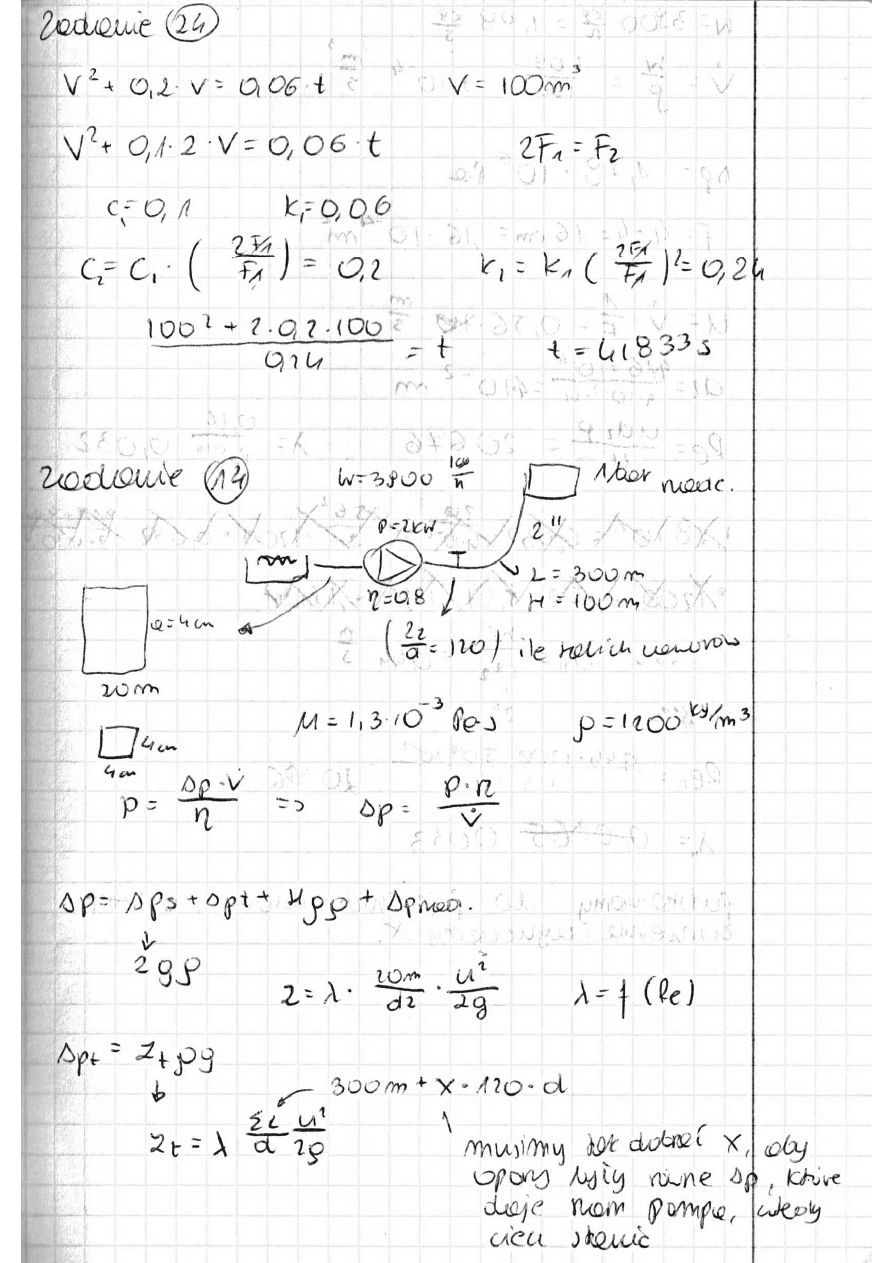 Zadanie 24
V² + 0,2 · V = 0,06 · t V = 100m³
V² + 0,1 · 2 · V = 0,06 · t 2F₁ = F₂
C₁ = 0,1 K₁ = 0,06
C₂ = C₁ · ( 2F₁ / F₁ ) = 0,2 K₂ = K₁ ( 2F₁ / F₁ )² = 0,24
100² + 2 · 0,2 · 100 / 0,24 = t t = 41833 s
Zadanie 14 W = 3800 kg/h
P = 2kW
2"
η = 0,8
L = 300m
H = 100m
a = 4cm
( Zz/d = 120 ) ile takich zaworów
20m
μ = 1,3 · 10⁻³ Pa s ρ = 1200 kg/m³
4cm
4cm
P = Δp · V̇ / η => Δp = P · η / V̇
Δp = Δps + Δpt + Hgρ + Δp
zgρ
z = λ · 20m / dz · u² / 2g λ = f (Re)
Δpt = Zt ρg
300m + x · 120 · d
Zt = λ ΣL / d u² / 2g
musimy tak dobrać x, aby
opory były równe Δp, które
daje nam pompa, wtedy
ciecz stanie